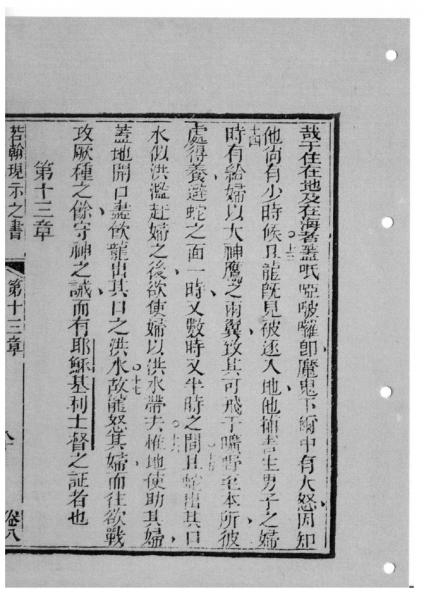 哉于住在地及在海者蓋呧啞啵囉卽魔鬼下爾中有大怒因知
他尚有少時候十三且龍旣見被逐入地他捕害生男子之婦
十四時有給婦以大神鷹之兩翼致其可飛于曠野至本所彼
處得養避蛇之面一時又數時又半時之間十五且蛇出其口
水似洪濫赶婦之後欲使婦以洪水帶去十六惟地便助其婦
蓋地開口盡飲龍出其口之洪水十七故龍怒其婦而往欲戰
攻厥種之餘守神之誡而有耶穌基利士督之証者也
第十三章
若翰現示之書
第十三章
卷八